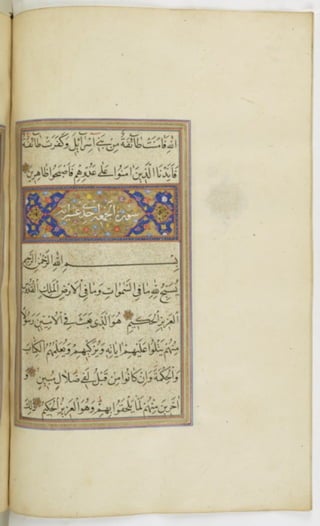 الله فامنت طائفة من بني اسرائيل وكفرت طائفة
فايدنا الذين امنوا على عدوهم فاصبحوا ظاهرين
سورة الجمعة احدى عشر اية
بسم الله الرحمن الرحيم
يسبح لله ما في السموات وما في الارض الملك القدوس
العزيز الحكيم هو الذي بعث في الاميين رسولا
منهم يتلوا عليهم اياته ويزكيهم ويعلمهم الكتاب
والحكمة وان كانوا من قبل لفي ضلال مبين و
اخرين منهم لما يلحقوا بهم وهو العزيز الحكيم ذلك